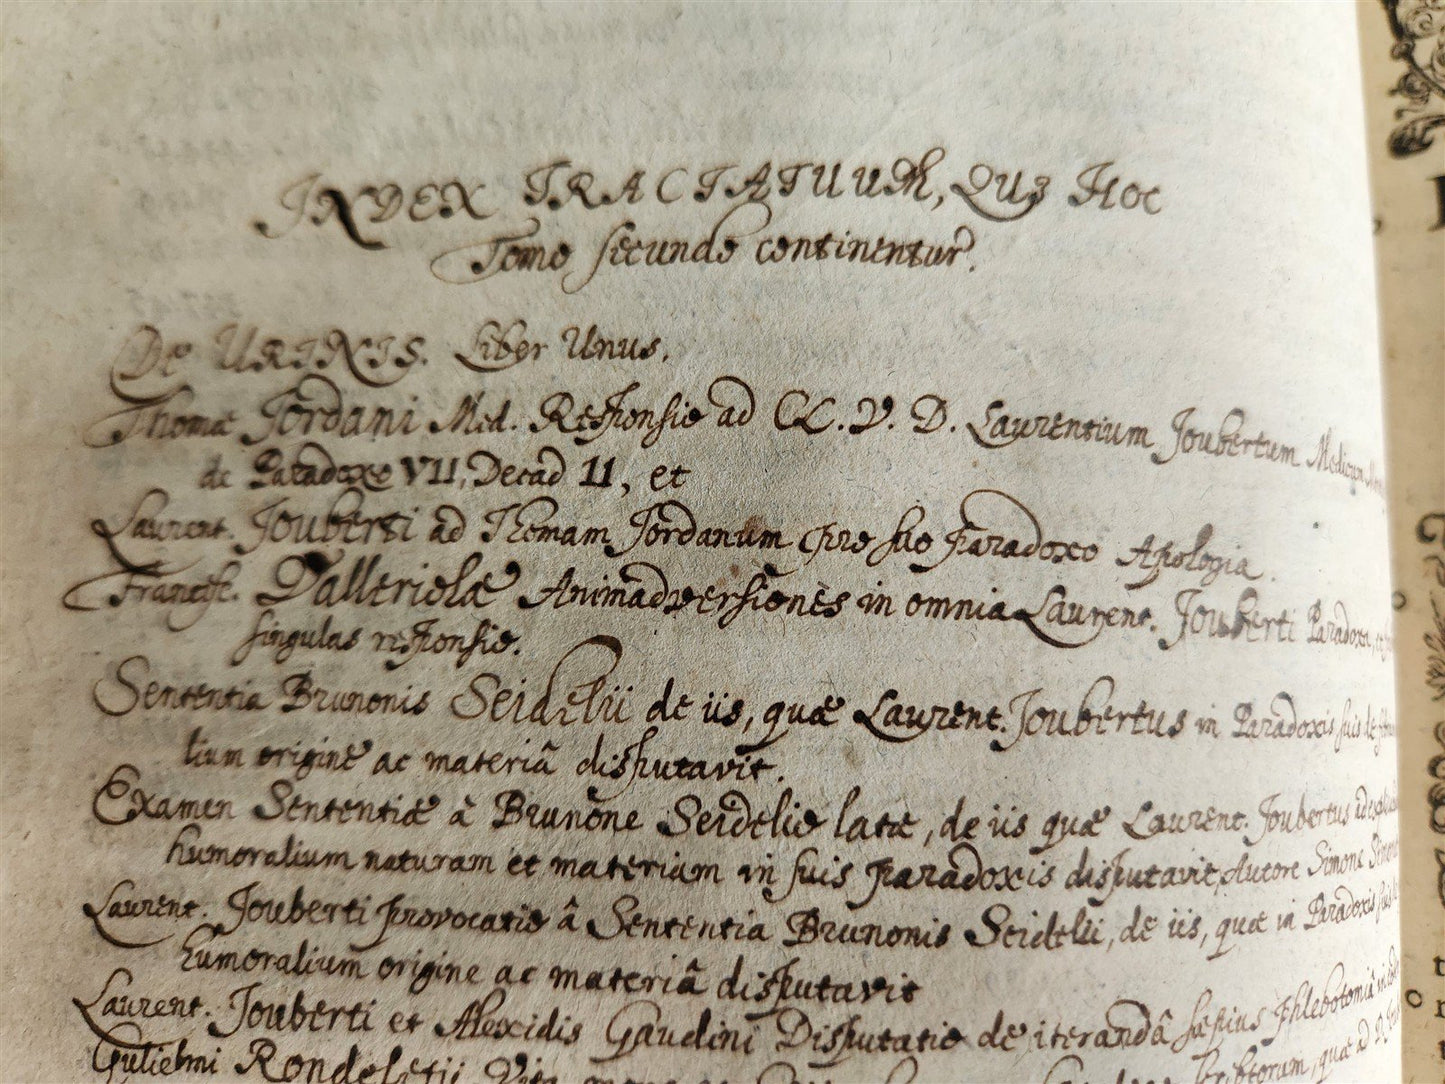 INDEX TRACTATUUM, QUÆ HOC
Tomo secundo continentur.
De URINIS. Liber Unus.
Thomæ Jordani Med. Responsio ad CL. V. D. Laurentium Joubertum Medicum
de Paradoxo VII, Decad II, et
Laurent. Jouberti ad Thomam Jordanum pro suo paradoxo Apologia.
Francisc. Valleriolæ Animadversiones in omnia Laurent. Jouberti Paradoxa,
singulas responsio.
Sententia Brunonis Seidelii de iis, quæ Laurent. Joubertus in Paradoxis suis de
lium origine ac materiâ disputavit.
Examen Sententiæ à Brunone Seidelio latæ, de iis quæ Laurent. Joubertus
humoralium naturam et materiam in suis paradoxis disputavit, Autore Simone
Laurent. Jouberti provocatio â Sententia Brunonis Seidelii, de iis, quæ in Paradoxis suis
humoralium origine ac materiâ disputavit
Laurent. Jouberti et Alexidis Gaudini Disputatio de iterandâ sæpius phlebotomiâ in
Gulielmi Rondeletii Vita quæ ad D.